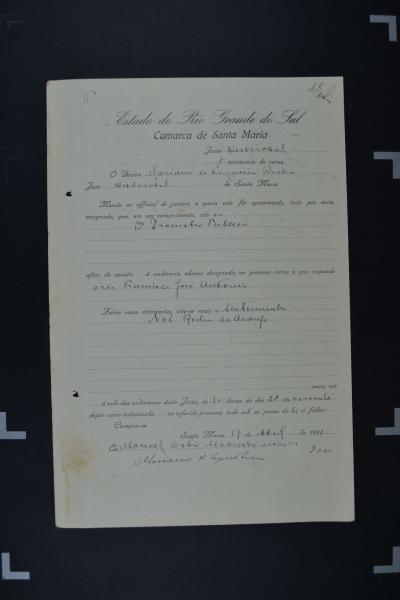 Estado do Rio Grande do Sul
Comarca de Santa Maria
Juizo Districtal
O Doutor Mariano de Siqueira Rocha
Juiz Districtal de Santa Maria
Mando ao official de justiça, a quem este fôr apresentado, indo por mim
assignado, que, em seu cumprimento, cite o
Dr Promotor Publico
afim de assistir á audiencia abaixo designada, no processo crime a que responde
o réo Francisco José Antonio
Feitas essas intimações, cite-se mais a testemunha
Noé Rocha de Araujo
para vir
á sala das audiencias deste Juizo, ás 10 horas do dia 21 do corrente
depôr como testemunha no referido processo, tudo sob as penas da lei si faltar.
Cumpra-se
Santa Maria, 17 de Abril de 19
Eu Manoel
Mariano